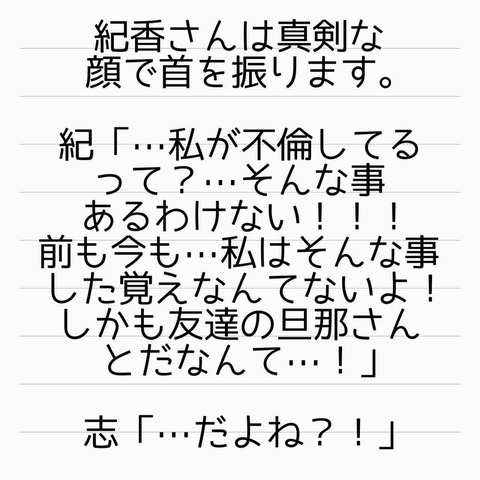 紀香さんは真剣な
顔で首を振ります。
紀「…私が不倫してる
って？…そんな事
あるわけない！！！
前も今も…私はそんな事
した覚えなんてないよ！
しかも友達の旦那さん
とだなんて…！」
志「…だよね？！」